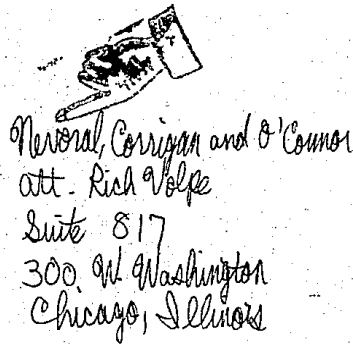 Nevoral, Corrigan and O'Connor
att - Rich Volpe
Suite 817
300. W. Washington
Chicago, Illinois